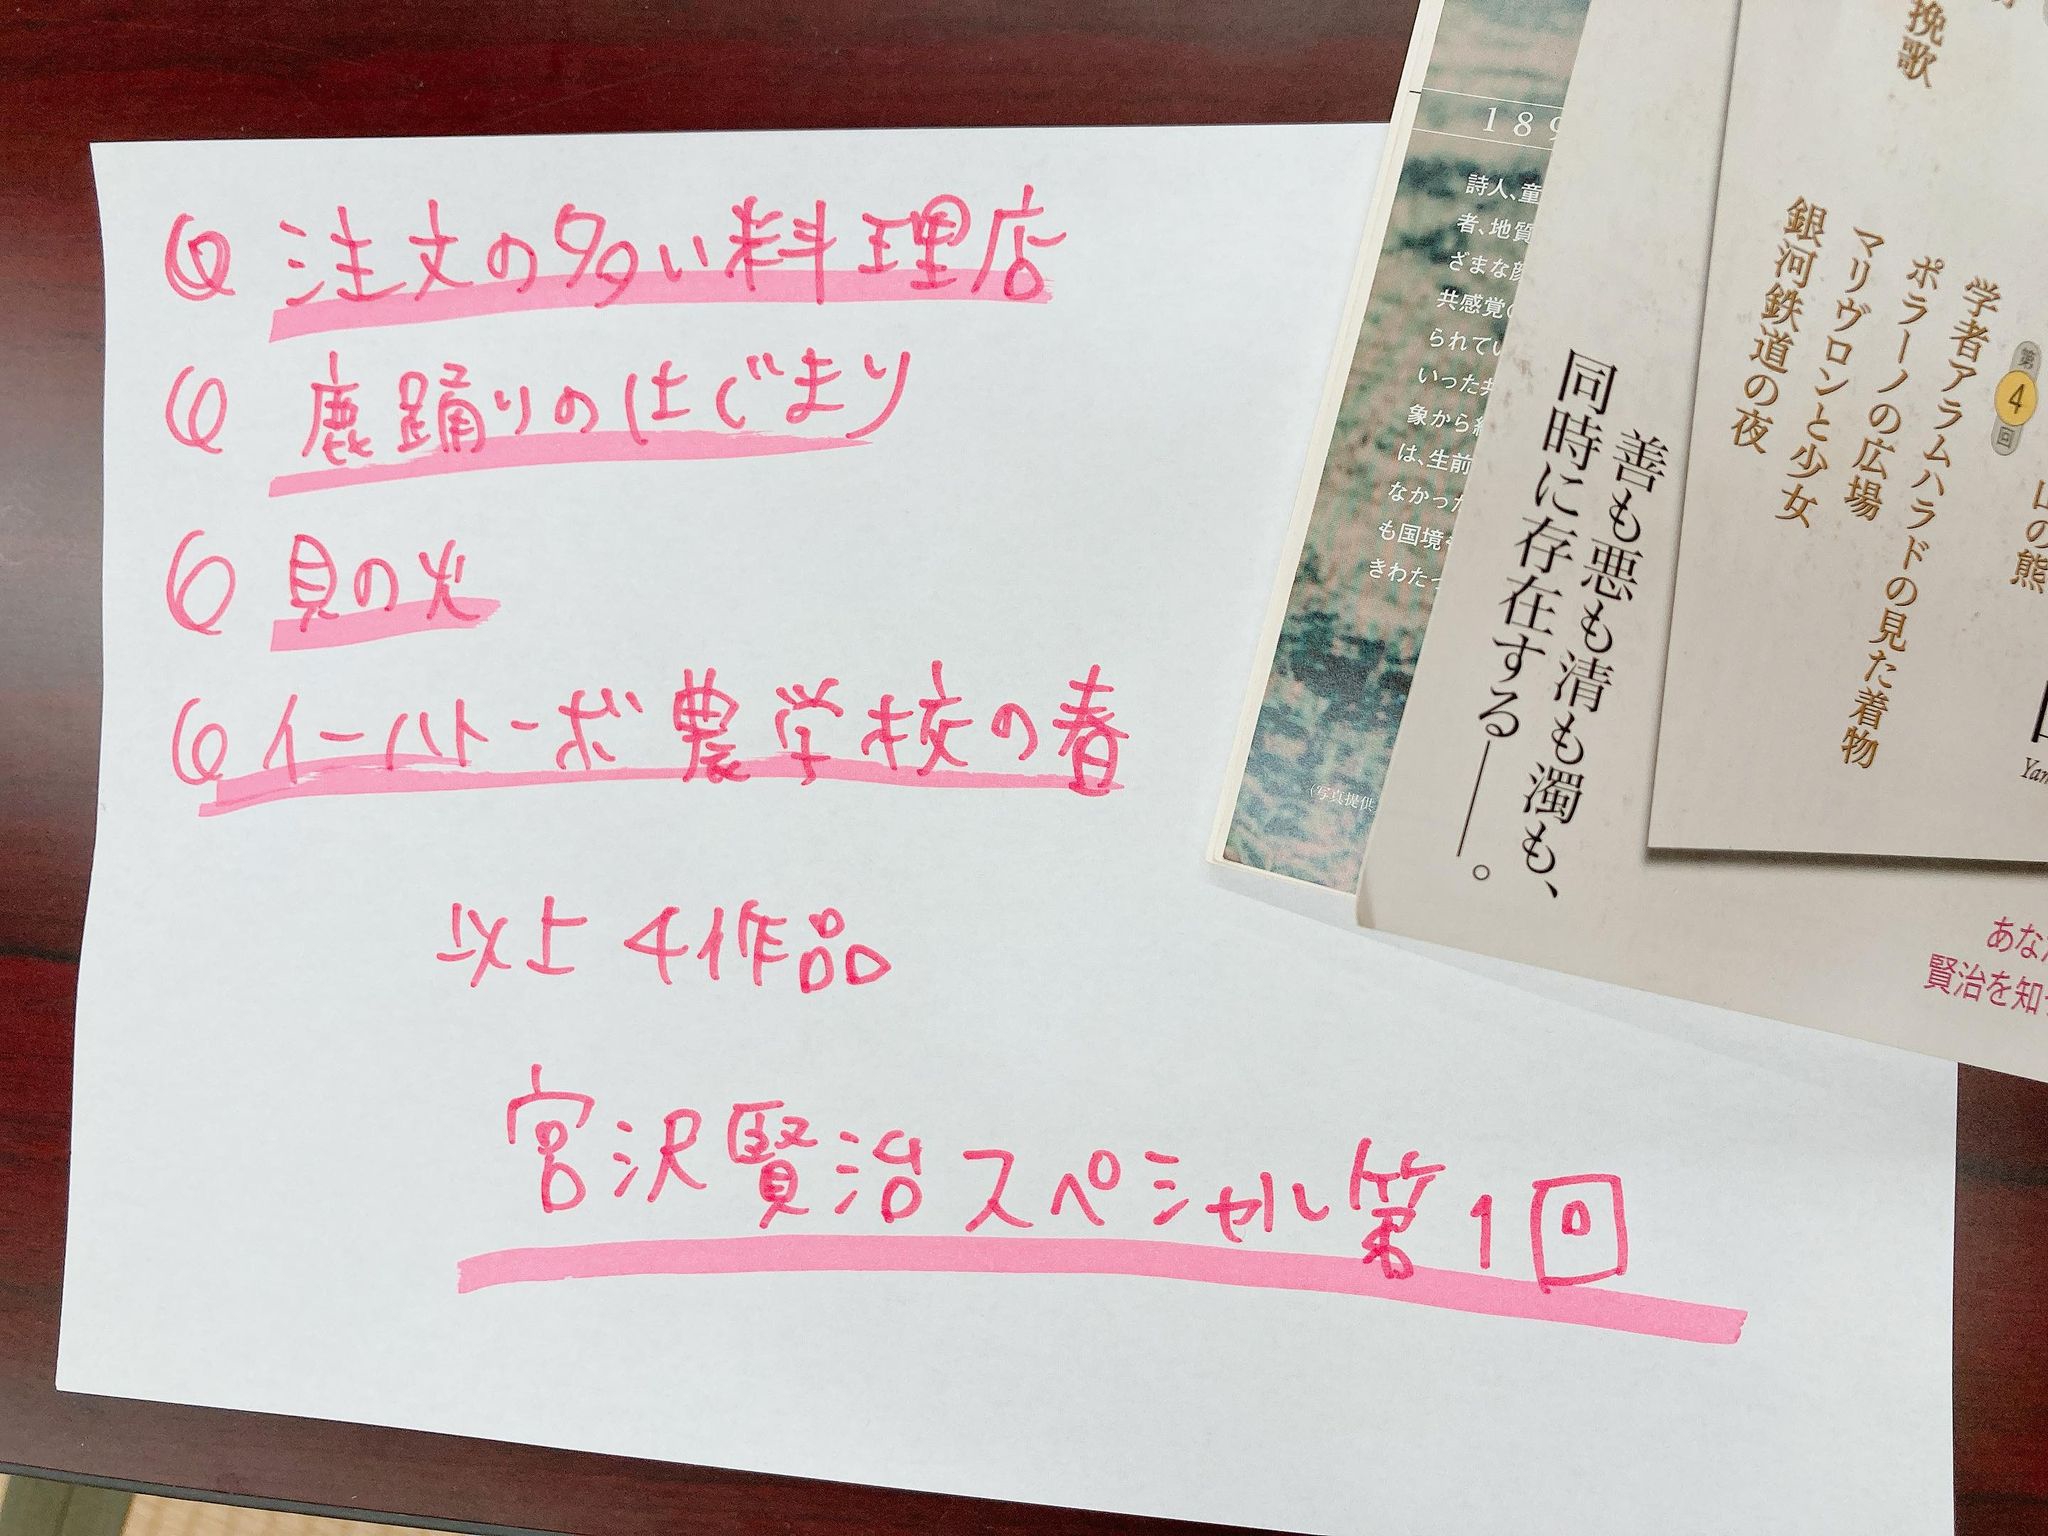 注文の多い料理店
鹿踊りのはじまり
貝の火
イーハトーボ農学校の春
以上4作品
宮沢賢治スペシャル第1回
189
詩人、童
者、地質
ざまな
共感覚
られてい
いった共
象から
は、生前
なかった
も国境
きわたっ
(写真提供
善も悪も清も濁も、
同時に存在する――。
挽歌
第4回
山の熊
学者アラムハラドの見た着物
ポラーノの広場
マリヴロンと少女
銀河鉄道の夜
Yam
あな
賢治を知